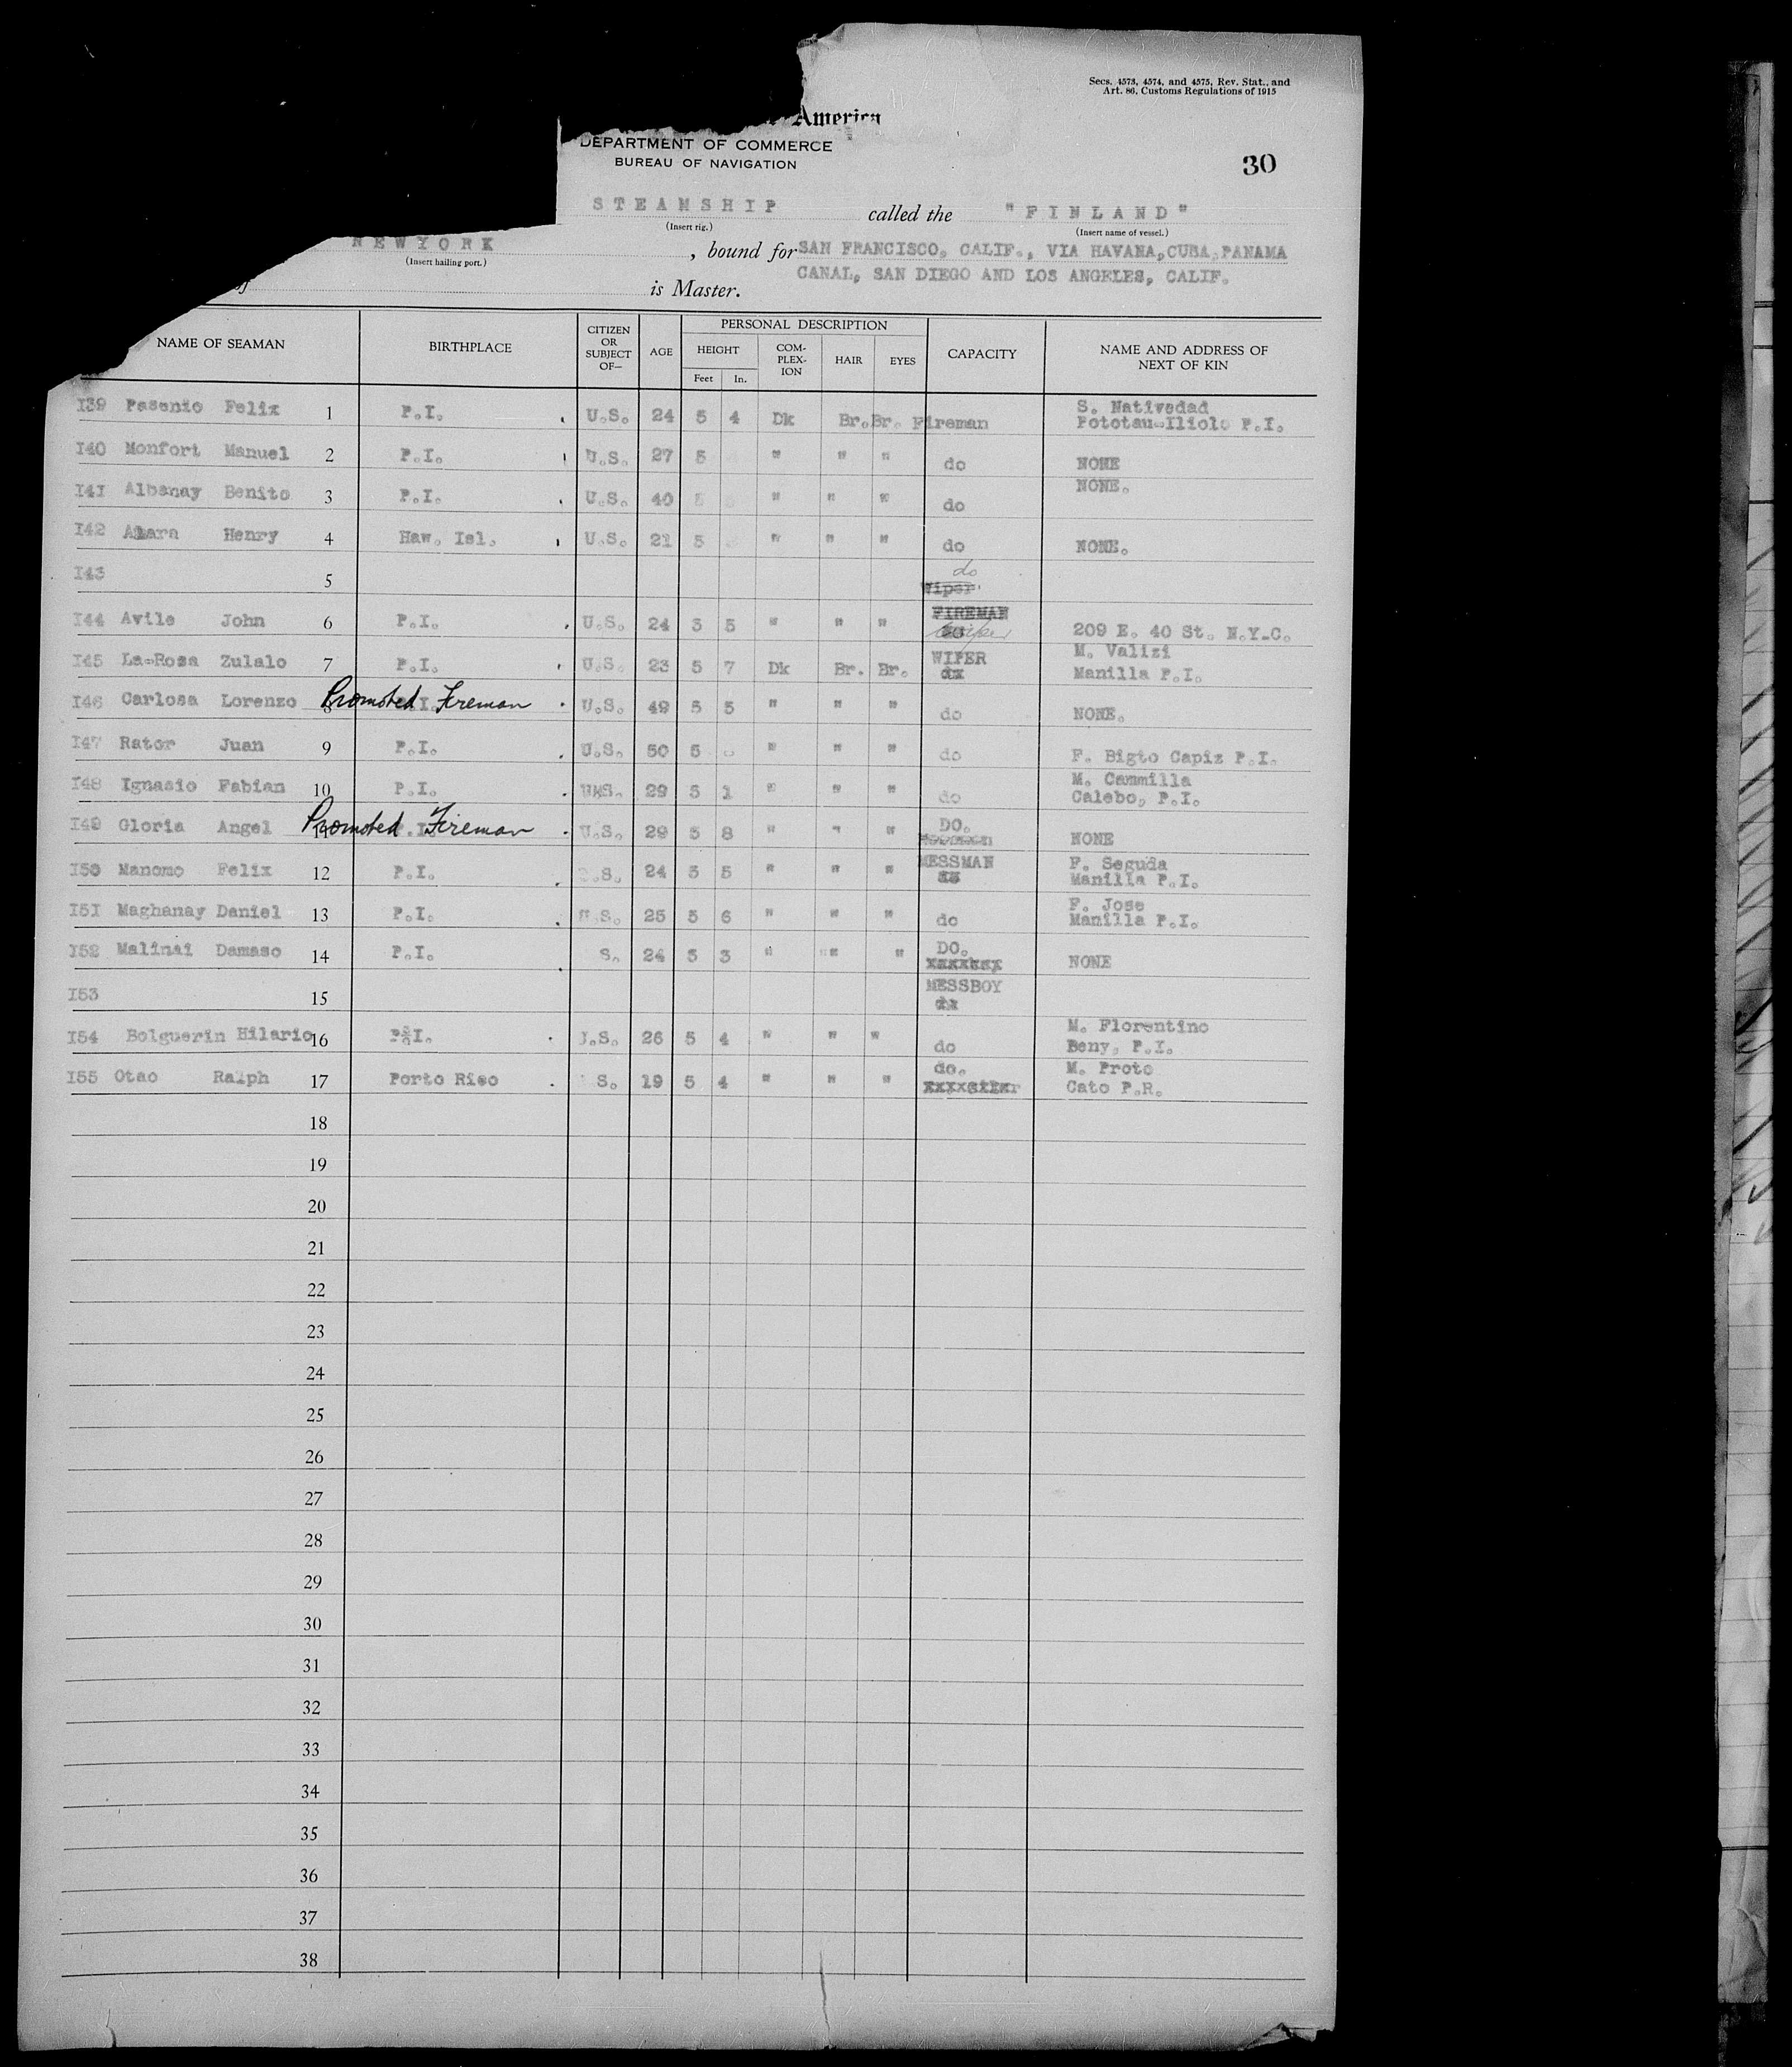 Secs. 4573, 4574, and 4575, Rev. Stat., and
Art. 86, Customs Regulations of 1915
America
DEPARTMENT OF COMMERCE
BUREAU OF NAVIGATION
30
STEAMSHIP called the "FINLAND"
(Insert rig.) (Insert name of vessel.)
NEWYORK , bound for SAN FRANCISCO, CALIF., VIA HAVANA,CUBA,PANAMA
(Insert hailing port.)
CANAL, SAN DIEGO AND LOS ANGELES, CALIF.
of is Master.
NAME OF SEAMAN BIRTHPLACE CITIZEN OR SUBJECT OF— AGE PERSONAL DESCRIPTION CAPACITY NAME AND ADDRESS OF NEXT OF KIN
HEIGHT COM-PLEX-ION HAIR EYES
Feet In.
I39 Pasenio Felix 1 P.I. U.S. 24 5 4 Dk Br. Br. Fireman S. Natividad
Pototau-Iliolo P.I.
I40 Monfort Manuel 2 P.I. U.S. 27 5 " " " do NONE
I41 Albanay Benito 3 P.I. U.S. 40 5 " " " do NONE.
I42 Amara Henry 4 Haw. Isl. U.S. 21 5 " " " do NONE.
I43 5 do
Wiper
I44 Avile John 6 P.I. U.S. 24 5 5 " " " FIREMAN
Wiper 209 E. 40 St. N.Y.C.
I45 La-Rosa Zulalo 7 P.I. U.S. 23 5 7 Dk Br. Br. WIPER M. Valizi
Manilla P.I.
I46 Carlosa Lorenzo 8 P.I. Promoted Fireman U.S. 49 5 5 " " " do NONE.
I47 Rator Juan 9 P.I. U.S. 50 5 " " " do F. Bigto Capiz P.I.
I48 Ignasio Fabian 10 P.I. U.S. 29 5 1 " " " do M. Cammilla
Calebo, P.I.
I49 Gloria Angel 11 P.I. Promoted Fireman U.S. 29 5 8 " " " DO. NONE
I50 Manomo Felix 12 P.I. U.S. 24 5 5 " " " MESSMAN F. Seguda
Manilla P.I.
I51 Maghanay Daniel 13 P.I. U.S. 25 5 6 " " " do F. Jose
Manilla P.I.
I52 Malinai Damaso 14 P.I. S. 24 5 3 " " " DO. NONE
I53 15 MESSBOY
I54 Bolguerin Hilario 16 P.I. U.S. 26 5 4 " " " do M. Florentino
Beny, P.I.
I55 Otao Ralph 17 Porto Rico S. 19 5 4 " " " do. M. Proto
Cato P.R.
18
19
20
21
22
23
24
25
26
27
28
29
30
31
32
33
34
35
36
37
38